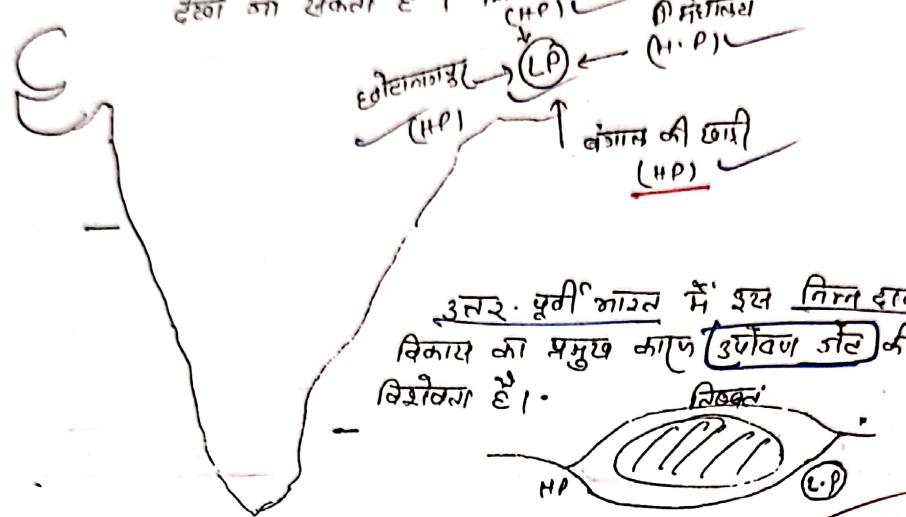 देखा जा सकता है ।
(HP)
मेघालय
(H.P)
LP
छोटानागपुर
(HP)
बंगाल की खाड़ी
(HP)
उत्तर. पूर्वी भारत में इस निम्न
विकास का प्रमुख कारण उपोष्ण जेट
विशेषता है।
तिब्बत
HP
L.P